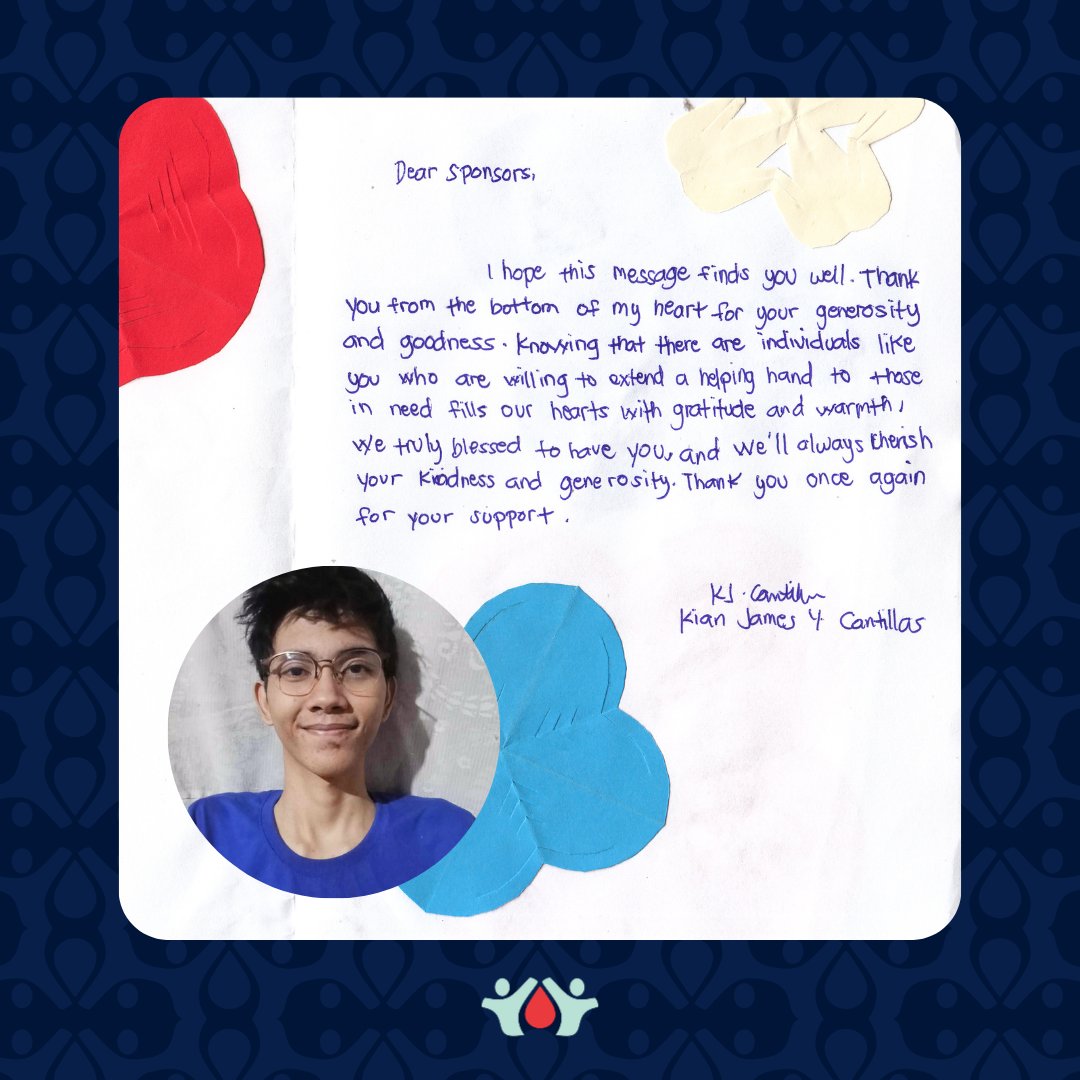 Dear Sponsors,
I hope this message finds you well. Thank
you from the bottom of my heart for your generosity
and goodness. Knowing that there are individuals like
you who are willing to extend a helping hand to those
in need fills our hearts with gratitude and warmth,
We truly blessed to have you, and we'll always cherish
your kindness and generosity. Thank you once again
for your support.
KJ. Cantillas
Kian James Y. Cantillas